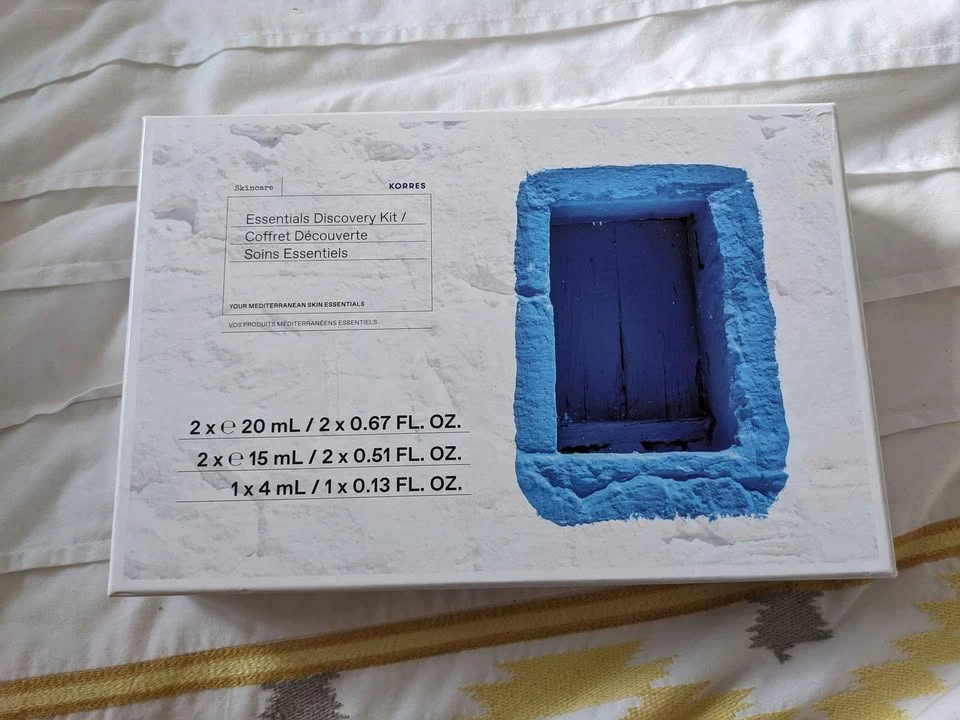 Skincare KORRES
Essentials Discovery Kit /
Coffret Découverte
Soins Essentiels
YOUR MEDITERRANEAN SKIN ESSENTIALS
VOS PRODUITS MÉDITERRANÉENS ESSENTIELS
2 x ℮ 20 mL / 2 x 0.67 FL. OZ.
2 x ℮ 15 mL / 2 x 0.51 FL. OZ.
1 x 4 mL / 1 x 0.13 FL. OZ.